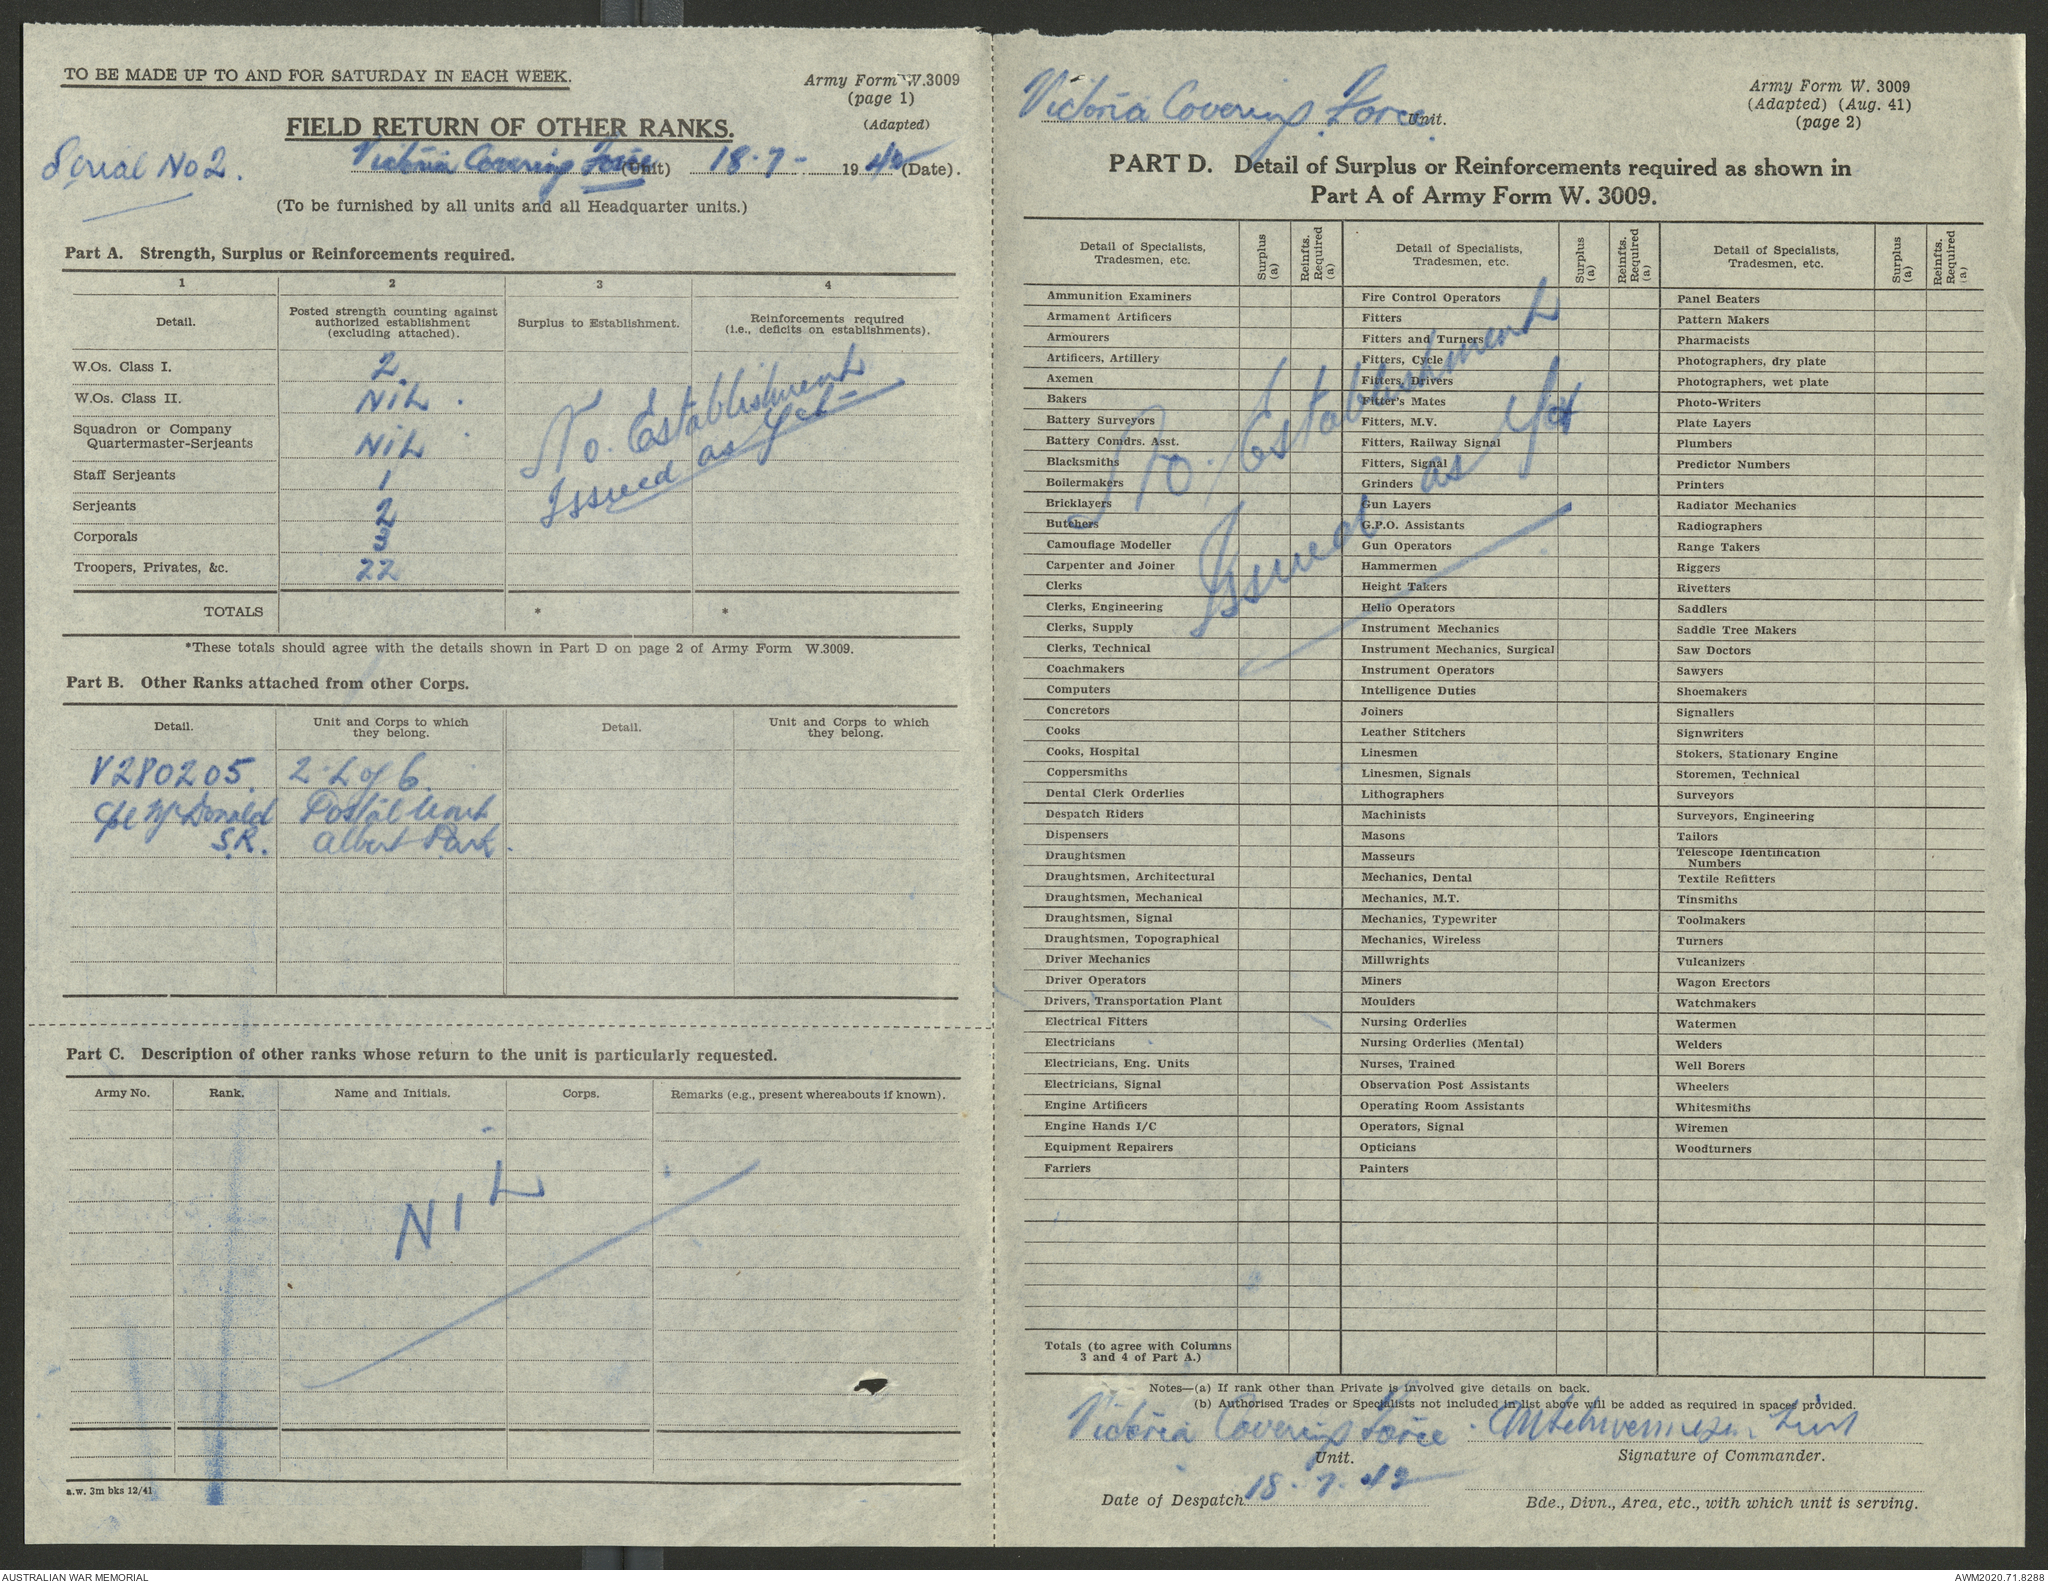 TO BE MADE UP TO AND FOR SATURDAY IN EACH WEEK.
Army Form W.3009
(page 1)
(Adapted)
FIELD RETURN OF OTHER RANKS.
Serial No 2.
Victoria Covering Force (Unit) 18-7- 1942 (Date).
(To be furnished by all units and all Headquarter units.)
Part A. Strength, Surplus or Reinforcements required.
1 2 3 4
Detail. Posted strength counting against authorized establishment (excluding attached). Surplus to Establishment. Reinforcements required (i.e., deficits on establishments).
W.Os. Class I. 2.
W.Os. Class II. NIL.
Squadron or Company
Quartermaster-Serjeants NIL
Staff Serjeants 1
Serjeants 2
Corporals 3
Troopers, Privates, &c. 22
No. Establishment
Issued as yet
TOTALS * *
*These totals should agree with the details shown in Part D on page 2 of Army Form W.3009.
Part B. Other Ranks attached from other Corps.
Detail. Unit and Corps to which they belong. Detail. Unit and Corps to which they belong.
V280205. 2 L of C.
Cpl McDonald Postal Unit
S.R. Albert Park.
Part C. Description of other ranks whose return to the unit is particularly requested.
Army No. Rank. Name and Initials. Corps. Remarks (e.g., present whereabouts if known).
NIL
a.w. 3m bks 12/41
Victoria Covering Force. Unit.
Army Form W. 3009
(Adapted) (Aug. 41)
(page 2)
PART D. Detail of Surplus or Reinforcements required as shown in
Part A of Army Form W. 3009.
Detail of Specialists, Tradesmen, etc. Surplus (a) Reinfts. Required (a) Detail of Specialists, Tradesmen, etc. Surplus (a) Reinfts. Required (a) Detail of Specialists, Tradesmen, etc. Surplus (a) Reinfts. Required (a)
Ammunition Examiners Fire Control Operators Panel Beaters
Armament Artificers Fitters Pattern Makers
Armourers Fitters and Turners Pharmacists
Artificers, Artillery Fitters, Cycle Photographers, dry plate
Axemen Fitters, Drivers Photographers, wet plate
Bakers Fitter's Mates Photo-Writers
Battery Surveyors Fitters, M.V. Plate Layers
Battery Comdrs. Asst. Fitters, Railway Signal Plumbers
Blacksmiths Fitters, Signal Predictor Numbers
Boilermakers Grinders Printers
Bricklayers Gun Layers Radiator Mechanics
Butchers G.P.O. Assistants Radiographers
Camouflage Modeller Gun Operators Range Takers
Carpenter and Joiner Hammermen Riggers
Clerks Height Takers Rivetters
Clerks, Engineering Helio Operators Saddlers
Clerks, Supply Instrument Mechanics Saddle Tree Makers
Clerks, Technical Instrument Mechanics, Surgical Saw Doctors
Coachmakers Instrument Operators Sawyers
Computers Intelligence Duties Shoemakers
Concretors Joiners Signallers
Cooks Leather Stitchers Signwriters
Cooks, Hospital Linesmen Stokers, Stationary Engine
Coppersmiths Linesmen, Signals Storemen, Technical
Dental Clerk Orderlies Lithographers Surveyors
Despatch Riders Machinists Surveyors, Engineering
Dispensers Masons Tailors
Draughtsmen Masseurs Telescope Identification Numbers
Draughtsmen, Architectural Mechanics, Dental Textile Refitters
Draughtsmen, Mechanical Mechanics, M.T. Tinsmiths
Draughtsmen, Signal Mechanics, Typewriter Toolmakers
Draughtsmen, Topographical Mechanics, Wireless Turners
Driver Mechanics Millwrights Vulcanizers
Driver Operators Miners Wagon Erectors
Drivers, Transportation Plant Moulders Watchmakers
Electrical Fitters Nursing Orderlies Watermen
Electricians Nursing Orderlies (Mental) Welders
Electricians, Eng. Units Nurses, Trained Well Borers
Electricians, Signal Observation Post Assistants Wheelers
Engine Artificers Operating Room Assistants Whitesmiths
Engine Hands I/C Operators, Signal Wiremen
Equipment Repairers Opticians Woodturners
Farriers Painters
No. Establishment
Issued as Yet
Totals (to agree with Columns
3 and 4 of Part A.)
Notes—(a) If rank other than Private is involved give details on back.
(b) Authorised Trades or Specialists not included in list above will be added as required in spaces provided.
Victoria Covering Force. Lieut
Unit. Signature of Commander.
Date of Despatch 18.7.42
Bde., Divn., Area, etc., with which unit is serving.
AUSTRALIAN WAR MEMORIAL AWM2020.71.8288